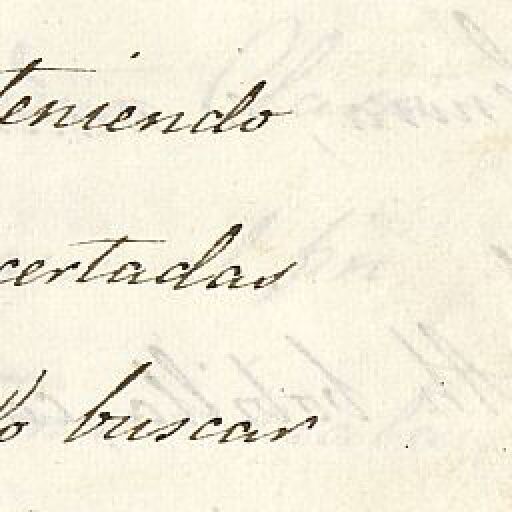 teniendo
certadas
buscar